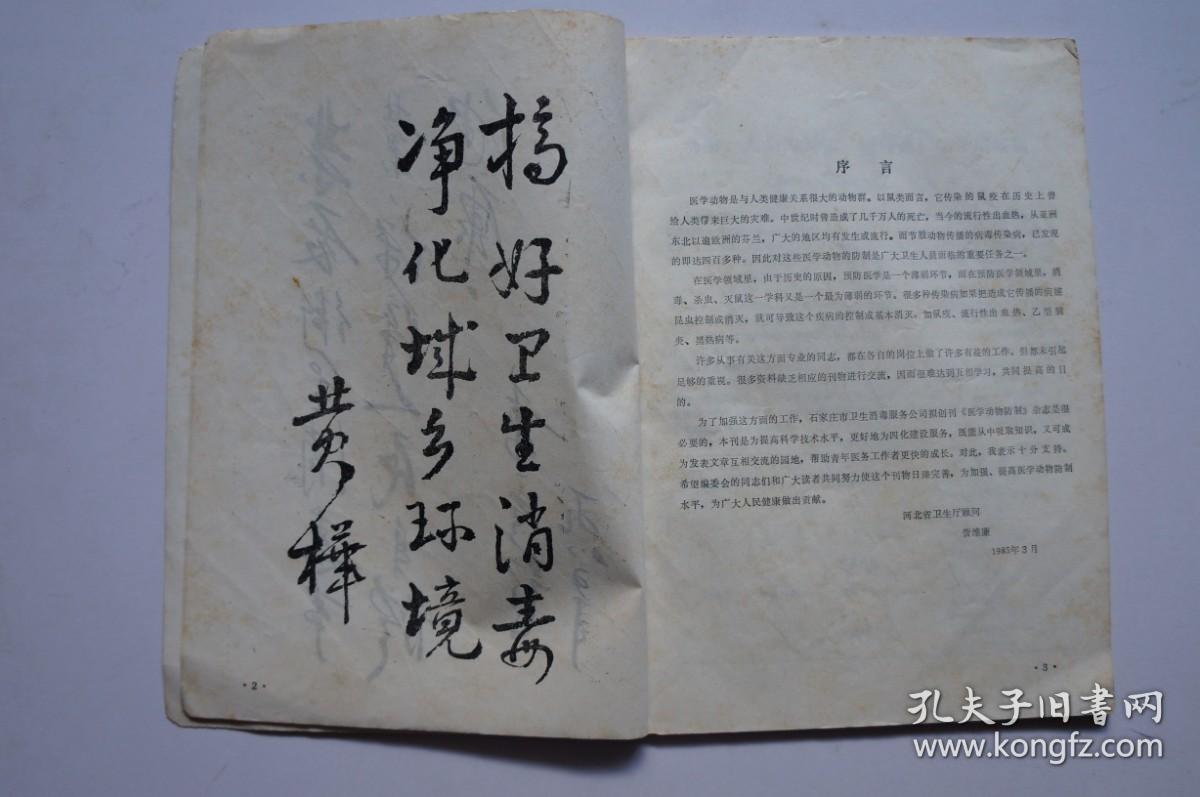 搞好卫生消毒
净化城乡环境
黄樺
·2·
序言
医学动物是与人类健康关系很大的动物群。以鼠类而言，它传染的鼠疫在历史上曾
给人类带来巨大的灾难。中世纪时曾造成了几千万人的死亡，当今的流行性出血热，从亚洲
东北以遍欧洲的芬兰，广大的地区均有发生或流行。而节肢动物传播的病毒传染病，已发现
的即达四百多种。因此对这些医学动物的防制是广大卫生人员面临的重要任务之一。
在医学领域里，由于历史的原因，预防医学是一个薄弱环节，而在预防医学领域里，消
毒、杀虫、灭鼠这一学科又是一个最为薄弱的环节。很多种传染病如果把造成它传播的病媒
昆虫控制或消灭，就可导致这个疾病的控制或基本消灭。如鼠疫、流行性出血热、乙型脑
炎、黑热病等。
许多从事有关这方面专业的同志，都在各自的岗位上做了许多有益的工作。但都未引起
足够的重视。很多资料缺乏相应的刊物进行交流，因而很难达到互相学习，共同提高的目
的。
为了加强这方面的工作，石家庄市卫生消毒服务公司拟创刊《医学动物防制》杂志是很
必要的，本刊是为提高科学技术水平，更好地为四化建设服务，既能从中吸取知识，又可成
为发表文章互相交流的园地，帮助青年医务工作者更快的成长。对此，我表示十分支持。
希望编委会的同志们和广大读者共同努力使这个刊物日臻完善，为加强、提高医学动物防制
水平，为广大人民健康做出贡献。
河北省卫生厅顾问
贾维廉
1985年3月
·3·
孔夫子旧书网
www.kongfz.com